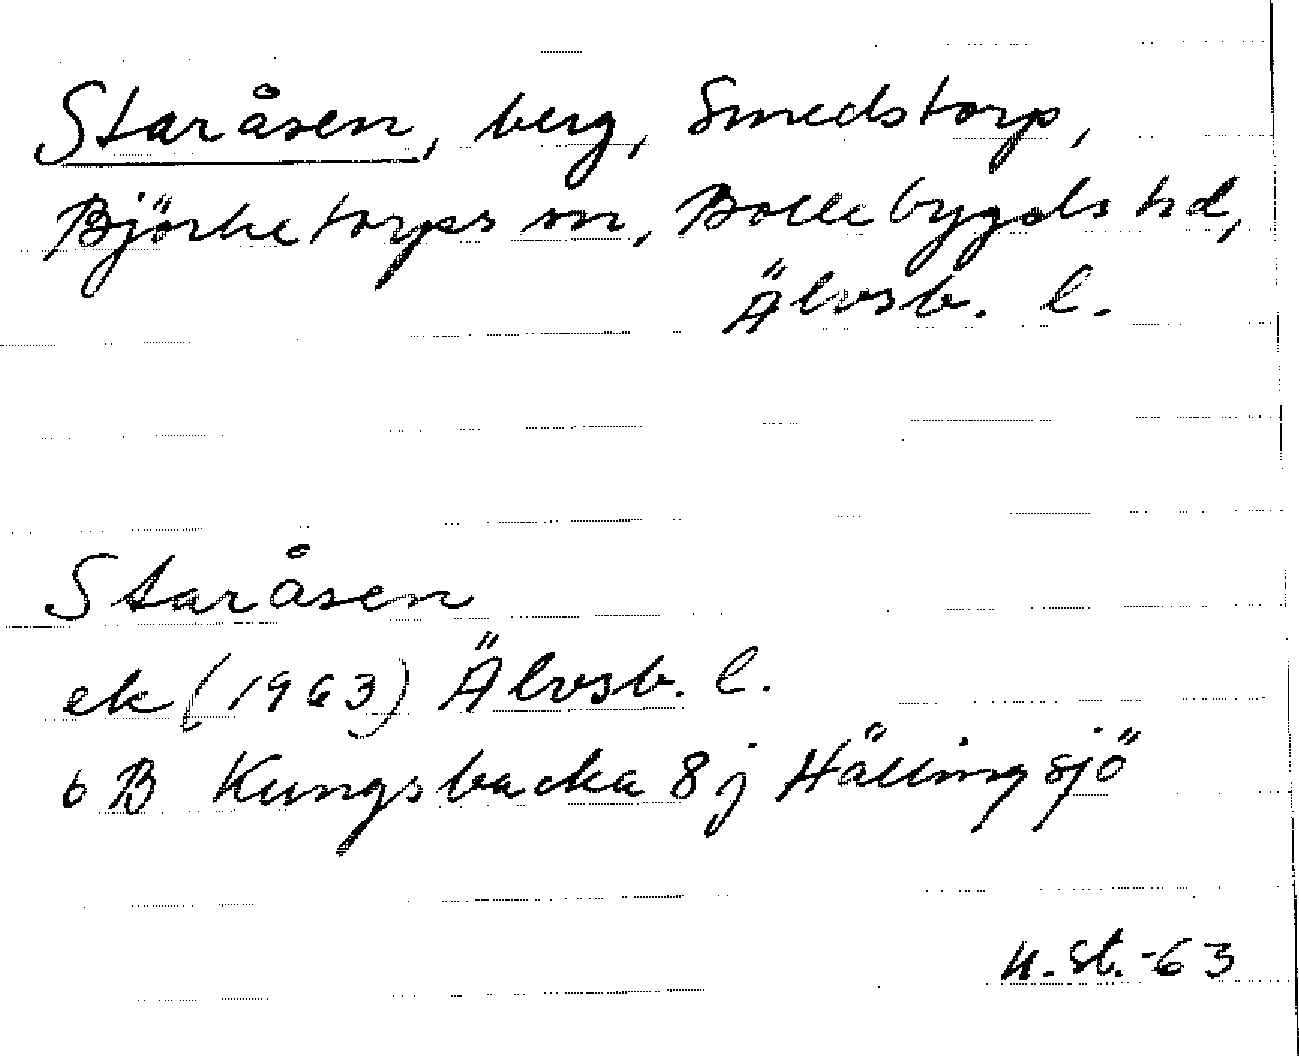 Staråsen, berg, Smedstorp,
Björketorps sn, Bollebygds hd,
Älvsb. l.
Staråsen
ek (1963) Älvsb. l.
6 B Kungsbacka 8 j Hällingsjö
H. St. -63